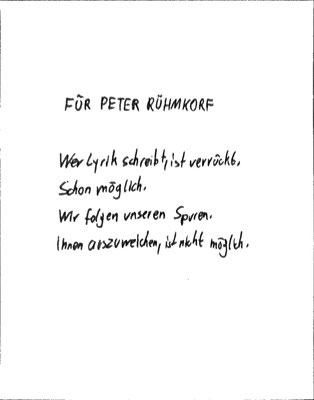 FÜR PETER RÜHMKORF
Wer Lyrik schreibt, ist verrückt.
Schon möglich.
Wir folgen unseren Spuren.
Ihnen auszuweichen, ist nicht möglich.